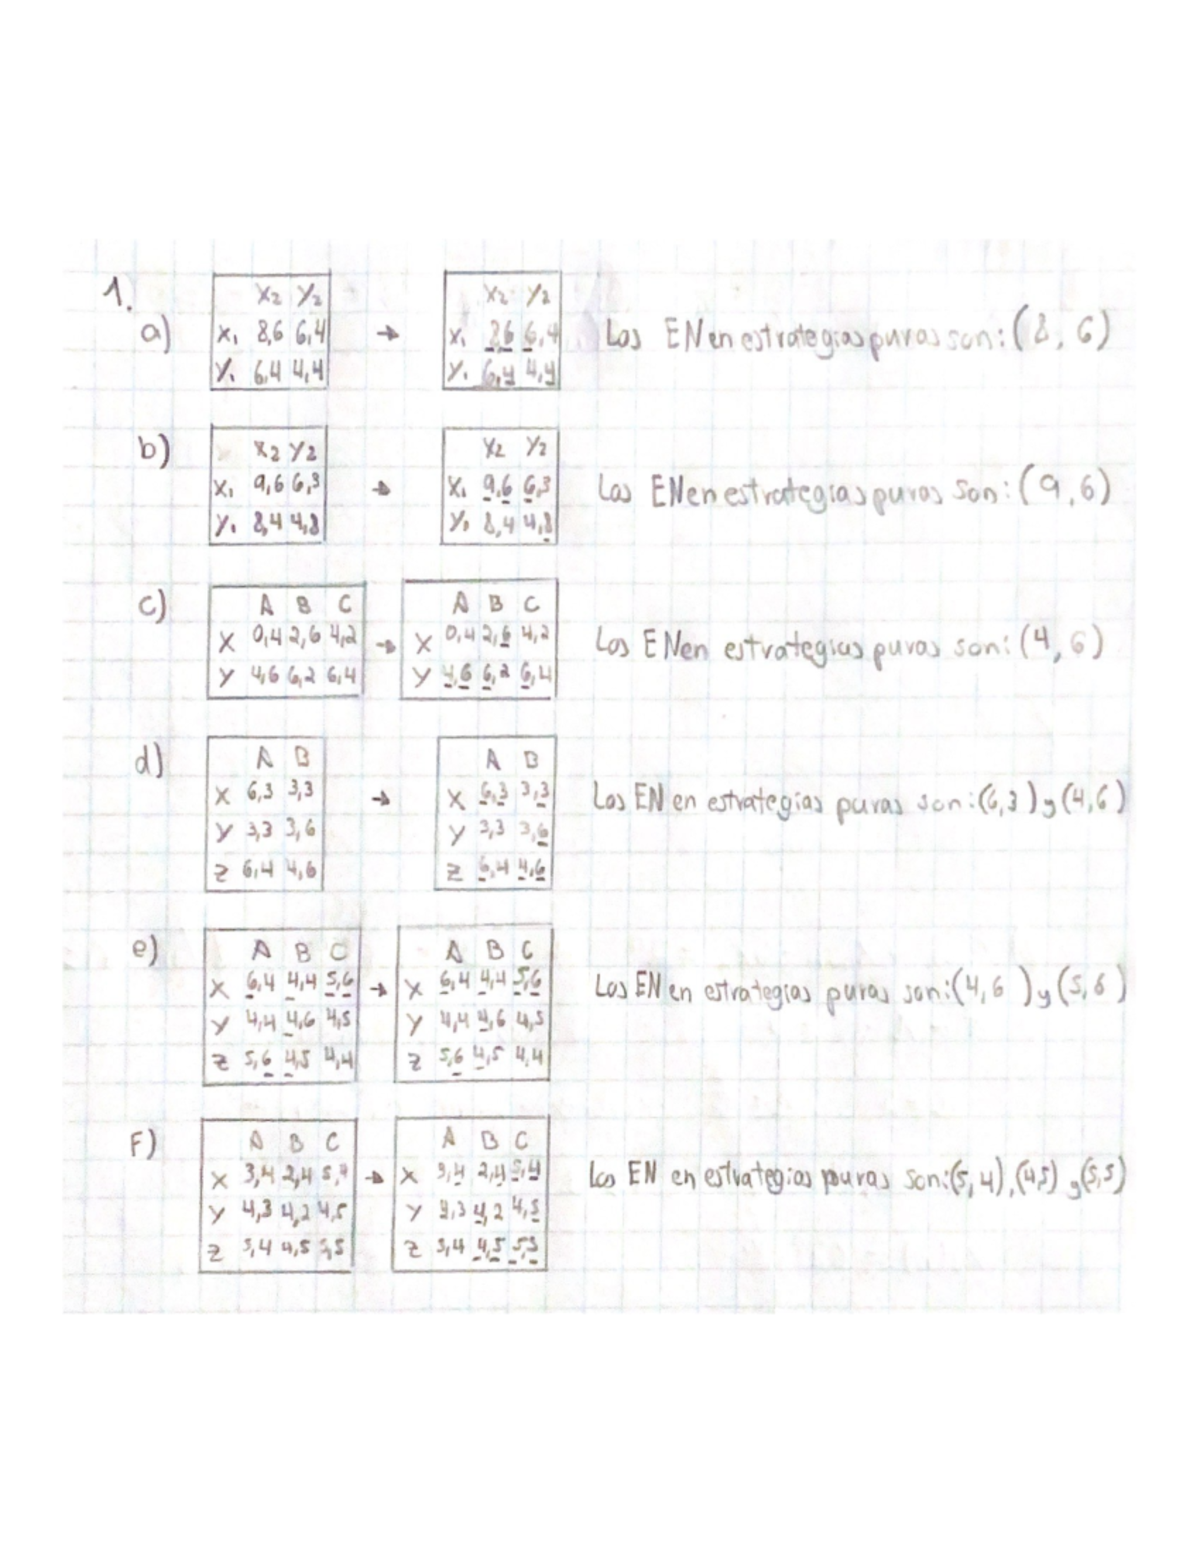 1.
a)
X₂ Y₂
X₁ 8,6 6,4
Y₁ 6,4 4,4
→
X₂ Y₂
X₁ 8,6 6,4
Y₁ 6,4 4,4
Los EN en estrategias puras son: (8, 6)
b)
X₂ Y₂
X₁ 9,6 6,3
Y₁ 8,4 4,8
→
X₂ Y₂
X₁ 9,6 6,3
Y₁ 8,4 4,8
Los EN en estrategias puras son: (9, 6)
c)
A B C
X 0,4 2,6 4,2
Y 4,6 6,2 6,4
→
A B C
X 0,4 2,6 4,2
Y 4,6 6,2 6,4
Los EN en estrategias puras son: (4, 6)
d)
A B
X 6,3 3,3
Y 3,3 3,6
Z 6,4 4,6
→
A B
X 6,3 3,3
Y 3,3 3,6
Z 6,4 4,6
Los EN en estrategias puras son: (6,3) y (4,6)
e)
A B C
X 6,4 4,4 5,6
Y 4,4 4,6 4,5
Z 5,6 4,5 4,4
→
A B C
X 6,4 4,4 5,6
Y 4,4 4,6 4,5
Z 5,6 4,5 4,4
Los EN en estrategias puras son: (4,6) y (5,6)
F)
A B C
X 3,4 2,4 5,4
Y 4,3 4,2 4,5
Z 5,4 4,5 5,5
→
A B C
X 3,4 2,4 5,4
Y 4,3 4,2 4,5
Z 5,4 4,5 5,5
Los EN en estrategias puras son: (5,4), (4,5) y (5,5)